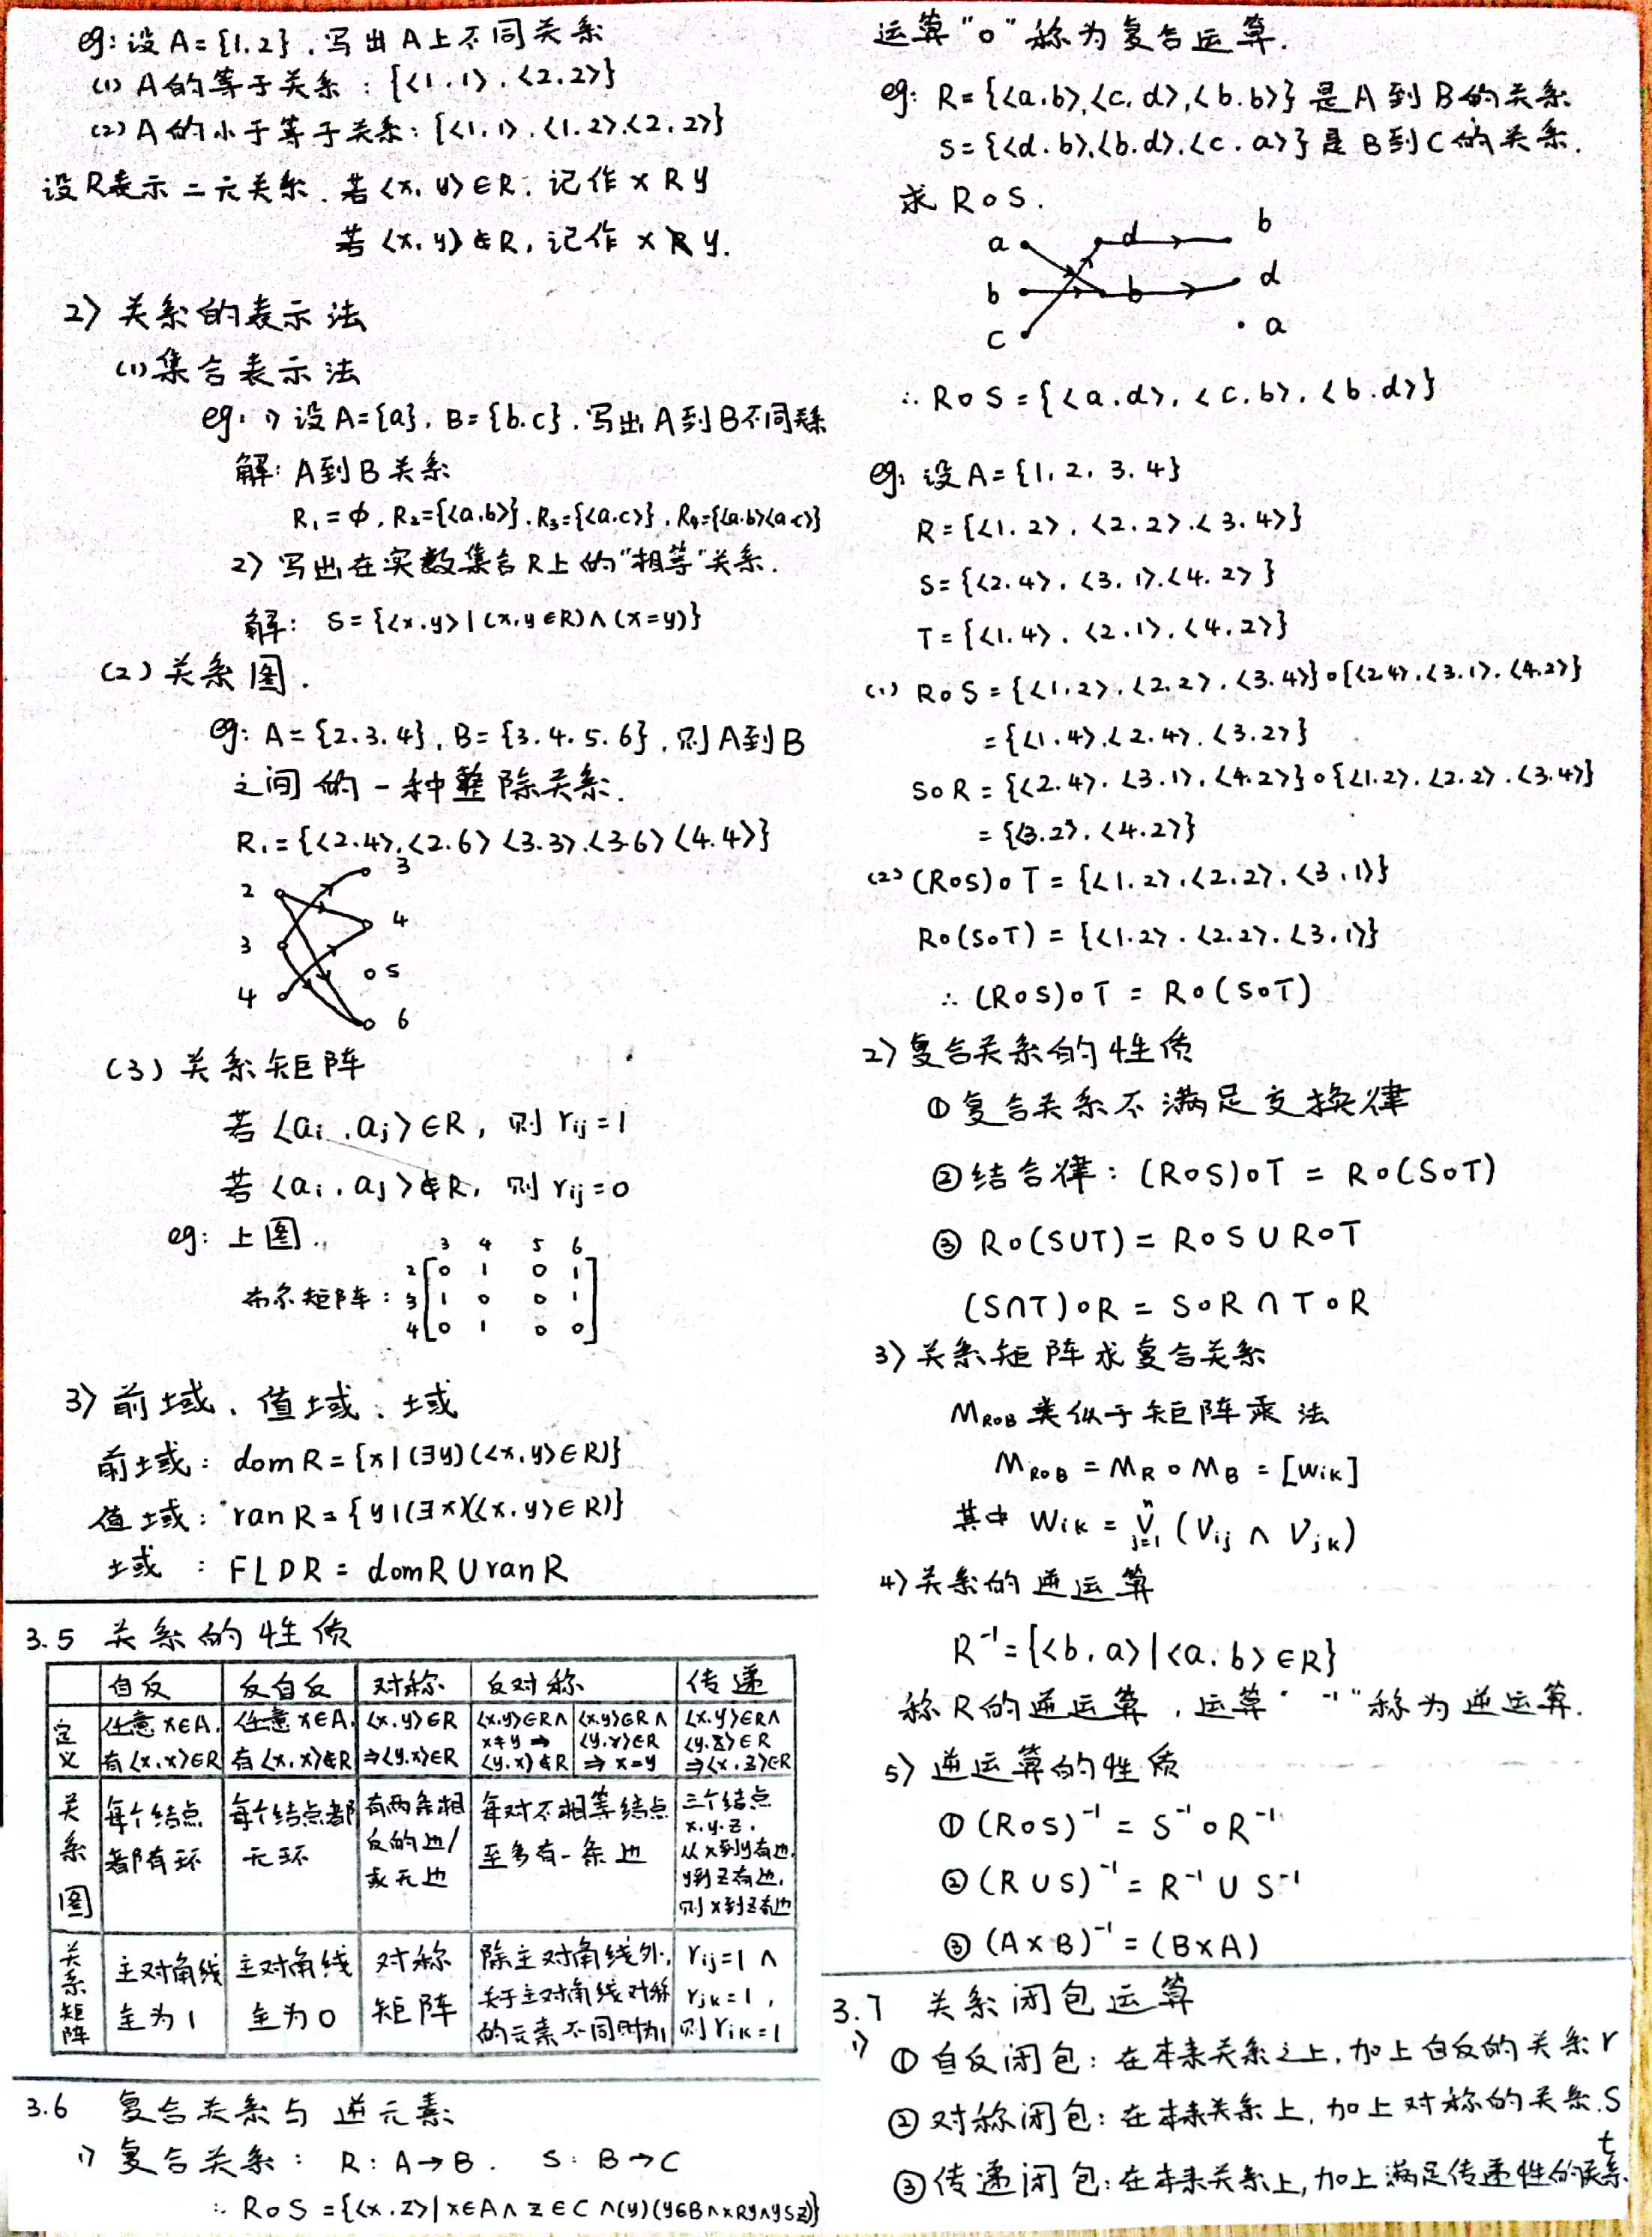 eg: 设 A={1,2}, 写出 A上不同关系
(1) A的等于关系: {<1,1>, <2,2>}
(2) A的小于等于关系: {<1,1>, <1,2>, <2,2>}
设R表示二元关系. 若<x,y>∈R, 记作 xRy
若<x,y>∉R, 记作 x\not{R}y.
2> 关系的表示法
(1) 集合表示法
eg: 1) 设A={a}, B={b,c}, 写出A到B不同关系
解: A到B关系
R₁=ϕ, R₂={<a,b>}, R₃={<a,c>}, R₄={<a,b><a,c>}
2> 写出在实数集合R上的“相等”关系.
解: S={<x,y>|(x,y∈R)∧(x=y)}
(2) 关系图.
eg: A={2,3,4}, B={3,4,5,6}, 则A到B
之间的一种整除关系.
R₁={<2,4>,<2,6><3,3>,<3,6><4,4>}
2 3
3 4
4 5
6
(3) 关系矩阵
若<aᵢ,aⱼ>∈R, 则 rᵢⱼ=1
若<aᵢ,aⱼ>∉R, 则 rᵢⱼ=0
eg: 上图.
3 4 5 6
2 [0 1 0 1]
布尔矩阵: 3 [1 0 0 1]
4 [0 1 0 0]
3> 前域、值域、域
前域: dom R={x|(∃y)(<x,y>∈R)}
值域: ran R={y|(∃x)(<x,y>∈R)}
域 : FLDR = domR∪ranR
3.5 关系的性质
自反 反自反 对称 反对称 传递
定义 任意x∈A, 有<x,x>∈R 任意x∈A, 有<x,x>∉R <x,y>∈R ⇒<y,x>∈R <x,y>∈R∧ x≠y ⇒ <y,x>∉R <x,y>∈R∧ <y,x>∈R ⇒ x=y <x,y>∈R∧ <y,z>∈R ⇒<x,z>∈R
关系图 每个结点都有环 每个结点都无环 有两条相反的边/或无边 每对不相等结点至多有一条边 三个结点x,y,z, 从x到y有边, y到z有边, 则x到z有边
关系矩阵 主对角线全为1 主对角线全为0 对称矩阵 除主对角线外, 关于主对角线对称的元素不同时为1 rᵢⱼ=1 ∧ rⱼₖ=1, 则rᵢₖ=1
3.6 复合关系与逆元素
1) 复合关系: R: A→B. S: B→C
∴ R∘S={<x,z>|x∈A∧z∈C∧(y)(y∈B∧xRy∧ySz)}
运算“∘”称为复合运算.
eg: R={<a,b>,<c,d>,<b,b>}是A到B的关系
S={<d,b>,<b,d>,<c,a>}是B到C的关系.
求 R∘S.
a d b
b b d
c a
∴ R∘S={<a,d>, <c,b>, <b,d>}
eg: 设 A={1,2,3,4}
R={<1,2>, <2,2>, <3,4>}
S={<2,4>, <3,1>, <4,2>}
T={<1,4>, <2,1>, <4,2>}
(1) R∘S={<1,2>,<2,2>,<3,4>}∘{<2,4>,<3,1>,<4,2>}
={<1,4>,<2,4>,<3,2>}
S∘R={<2,4>,<3,1>,<4,2>}∘{<1,2>,<2,2>,<3,4>}
={<3,2>,<4,2>}
(2) (R∘S)∘T={<1,2>,<2,2>,<3,1>}
R∘(S∘T)={<1,2>,<2,2>,<3,1>}
∴ (R∘S)∘T = R∘(S∘T)
2> 复合关系的性质
① 复合关系不满足交换律
② 结合律: (R∘S)∘T = R∘(S∘T)
③ R∘(S∪T)=R∘S∪R∘T
(S∩T)∘R = S∘R∩T∘R
3> 关系矩阵求复合关系
M_{R∘B} 类似于矩阵乘法
M_{R∘B} = M_R∘M_B = [w_{ik}]
其中 W_{ik} = \bigvee_{j=1}^{n} (V_{ij} ∧ V_{jk})
4> 关系的逆运算
R⁻¹={<b,a>|<a,b>∈R}
称R的逆运算, 运算“⁻¹”称为逆运算.
5> 逆运算的性质
① (R∘S)⁻¹ = S⁻¹∘R⁻¹
② (R∪S)⁻¹ = R⁻¹∪S⁻¹
③ (A×B)⁻¹ = (B×A)
3.7 关系闭包运算
1) ① 自反闭包: 在本来关系之上, 加上自反的关系 r
② 对称闭包: 在本来关系上, 加上对称的关系. S
③ 传递闭包: 在本来关系上, 加上满足传递性的关系. t